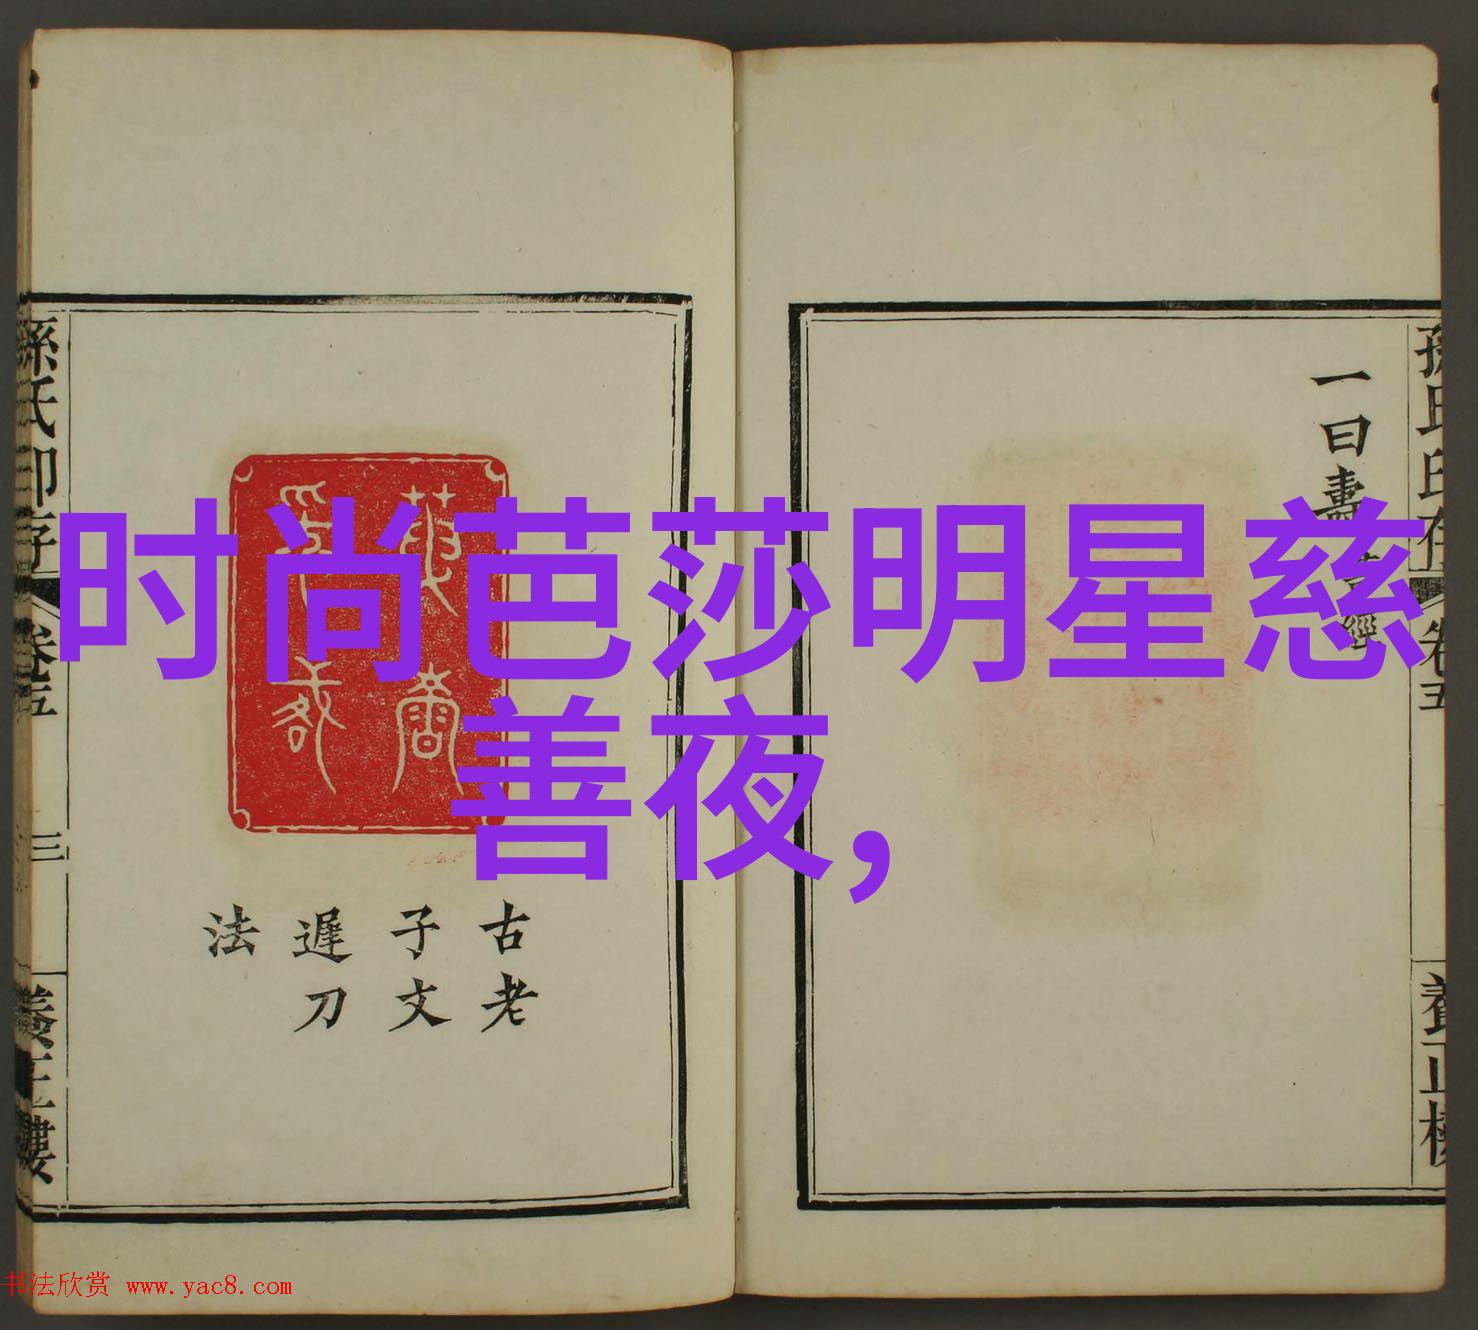 时尚芭莎明星慈
善夜,
一曰
孫氏印存
卷五
養正樓
古老
子文
遲刀
法
孫氏印存
卷五
三
養正樓
书法欣赏 www.yac8.com